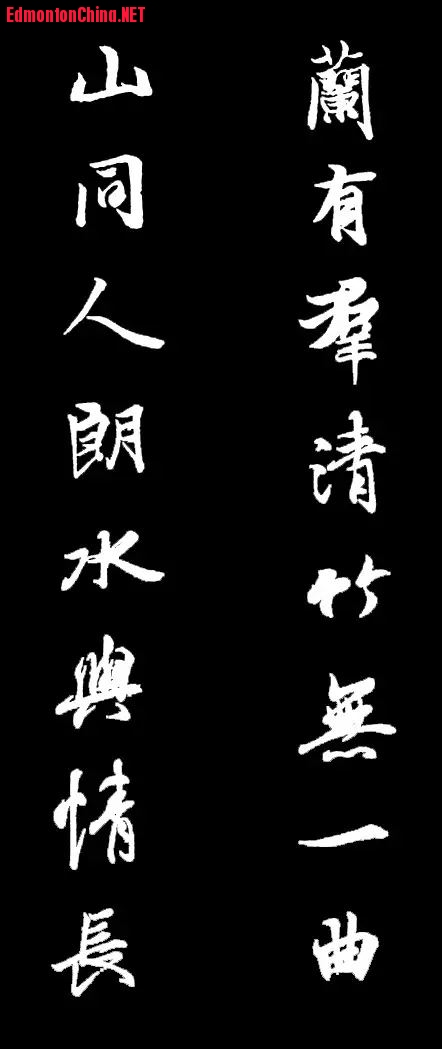 EdmontonChina.NET
蘭有羣清竹無一曲
山同人朗水與情長